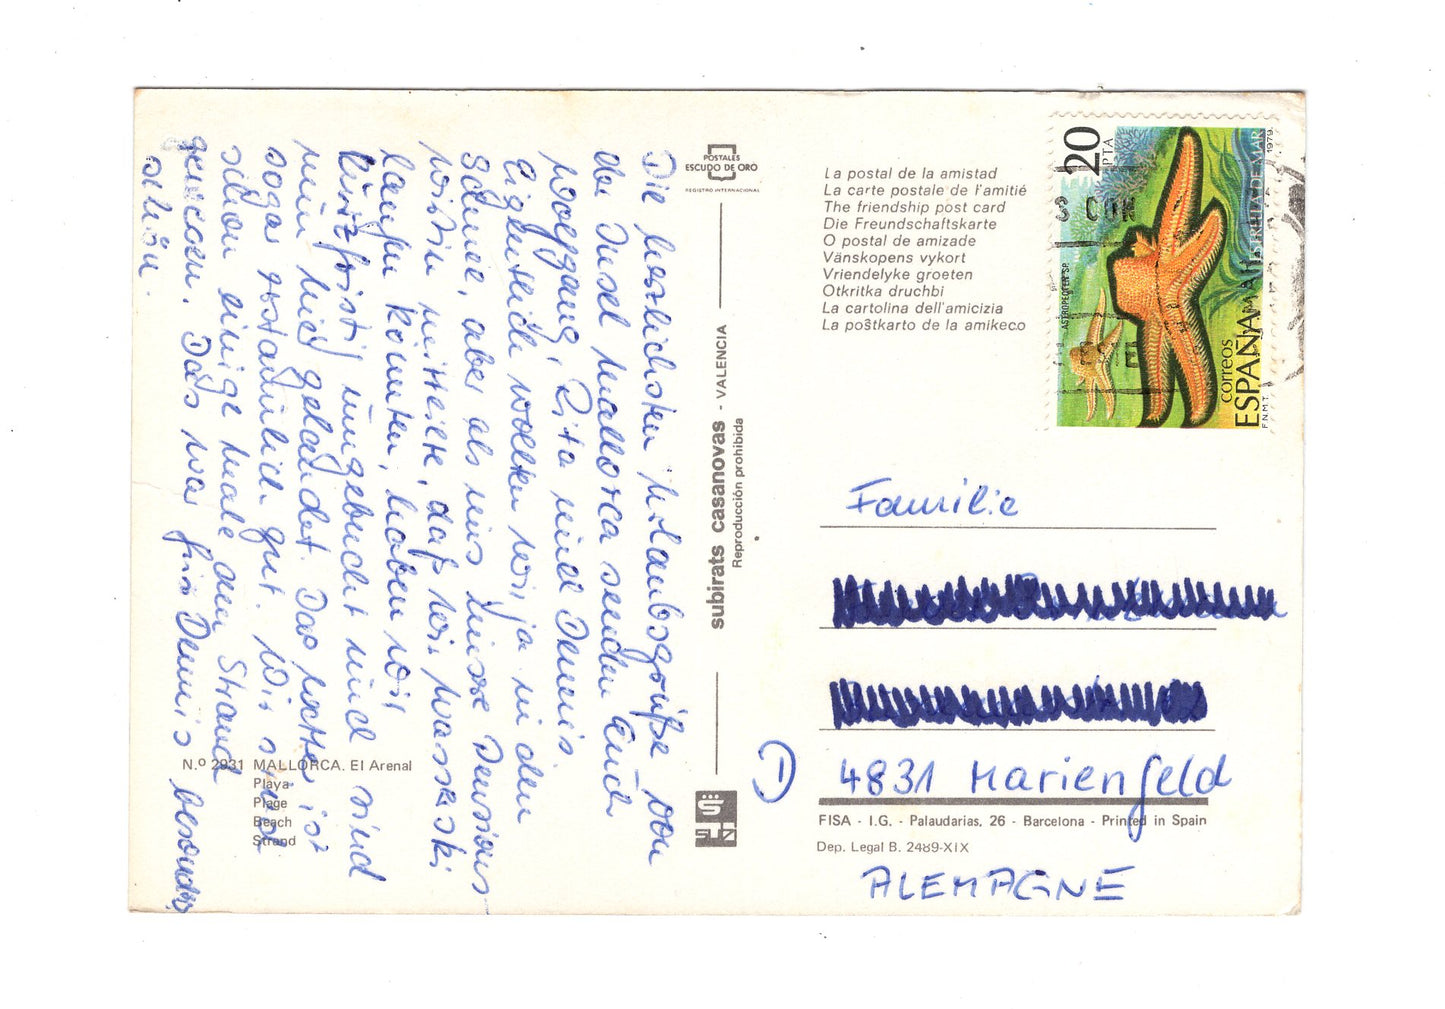 Die herzlichsten Urlaubsgrüße von
der Insel Mallorca senden Euch
Wolfgang, Rita und Dennis.
Eigentlich wollten wir ja in den
Schnee, aber als uns unsere Pensions-
wirtin mitteilte, daß wir wasserski
laufen könnten, haben wir
kurzfristig umgebucht und sind
nun hier gelandet. Das Wetter ist
sogar erstaunlich gut. Wir sind
schon einige Male am Strand
gewesen. Das war für Dennis besonders
schön.
N.º 2931 MALLORCA. El Arenal
Playa
Plage
Beach
Strand
POSTALES
ESCUDO DE ORO
REGISTRO INTERNACIONAL
subirats casanovas - VALENCIA
Reproducción prohibida
La postal de la amistad
La carte postale de l'amitié
The friendship post card
Die Freundschaftskarte
O postal de amizade
Vänskopens vykort
Vriendelyke groeten
Otkritka druchbi
La cartolina dell'amicizia
La poŝtkarto de la amikeco
20 PTA
ASTROPECTEN SP.
ESTRELLA DE MAR
1979
correos
ESPAÑA
F.N.M.T.
S CON
Familie
D 4831 Marienfeld
FISA - I.G. - Palaudarias, 26 - Barcelona - Printed in Spain
Dep. Legal B. 2489-XIX
ALEMAGNE